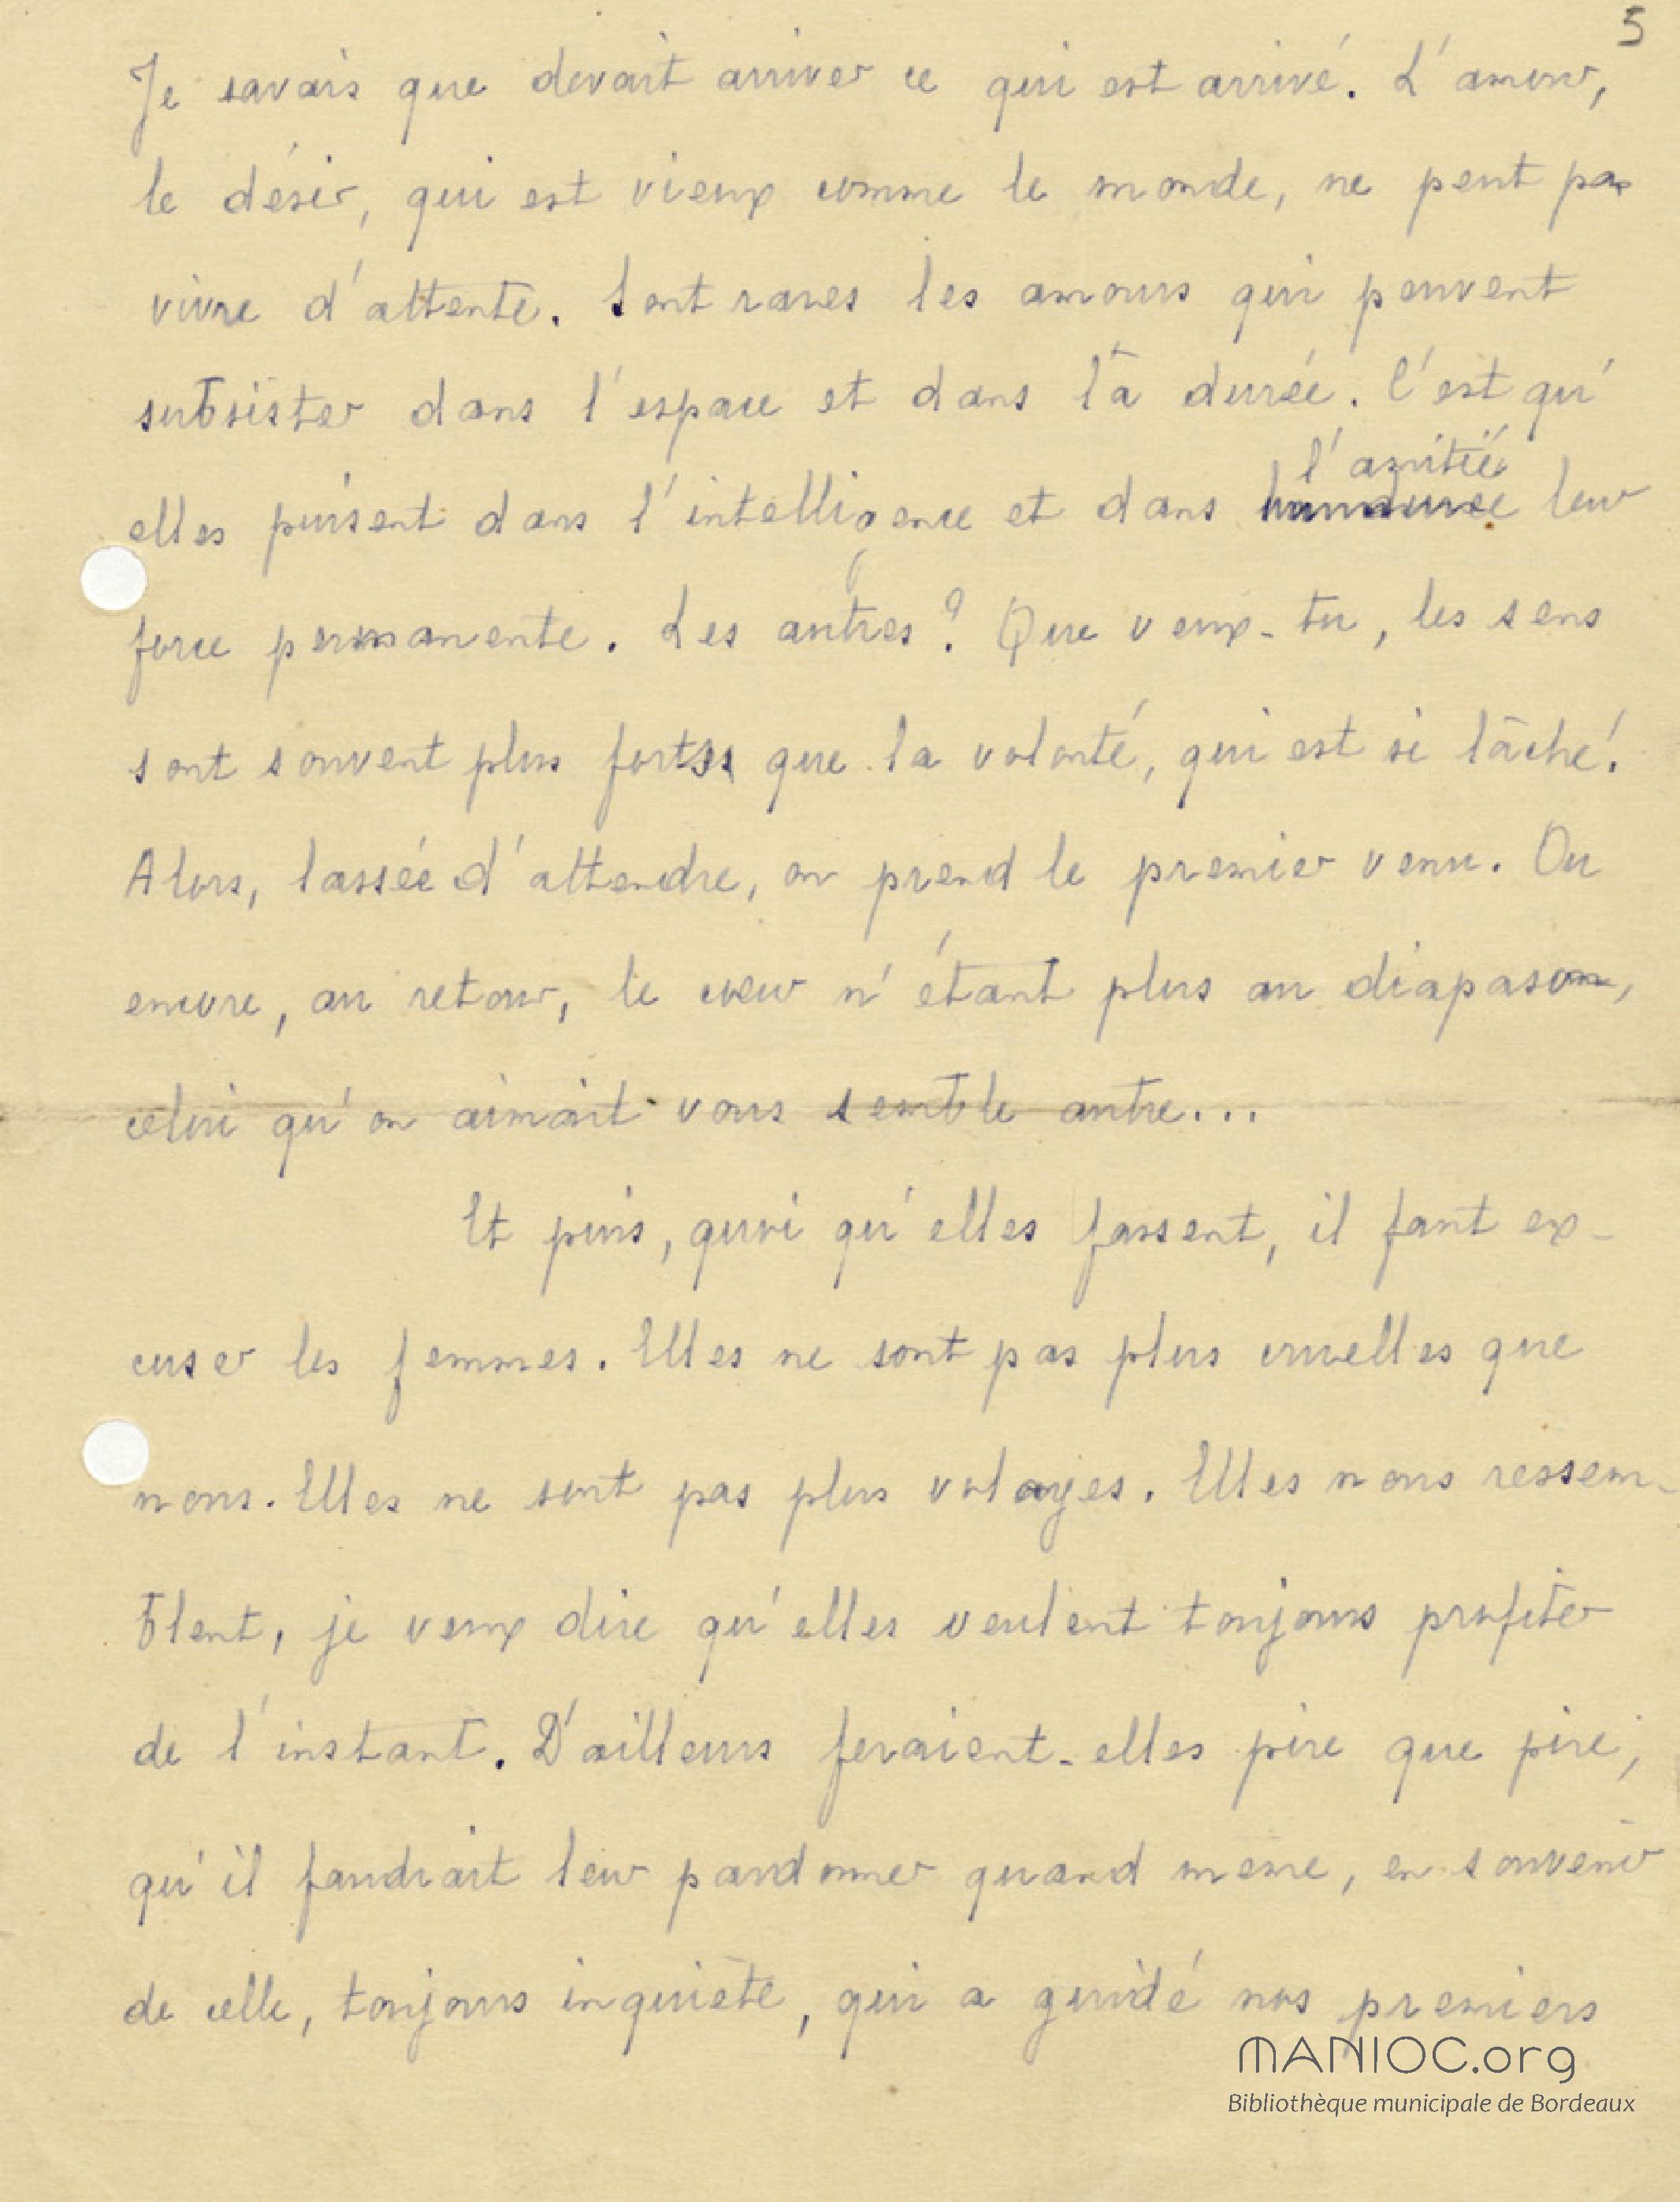 5
Je savais que devait arriver ce qui est arrivé. L'amour,
le désir, qui est vieux comme le monde, ne peut pas
vivre d'attente. Sont rares les amours qui peuvent
subsister dans l'espace et dans la durée. C'est qu'
l'amitié
elles puisent dans l'intelligence et dans leur
force permanente. Les autres? Que veux-tu, les sens
sont souvent plus forts que la volonté, qui est si lâche!
Alors, lassée d'attendre, on prend le premier venu. Ou
encore, au retour, le cœur n'étant plus au diapason,
celui qu'on aimait vous semble autre...
Et puis, quoi qu'elles fassent, il faut ex-
cuser les femmes. Elles ne sont pas plus cruelles que
nous. Elles ne sont pas plus volages. Elles nous ressem-
blent, je veux dire qu'elles veulent toujours profiter
de l'instant. D'ailleurs feraient-elles pire que pire,
qu'il faudrait leur pardonner quand même, en souvenir
de celle, toujours inquiète, qui a guidé nos premiers
MANIOC.org
Bibliothèque municipale de Bordeaux